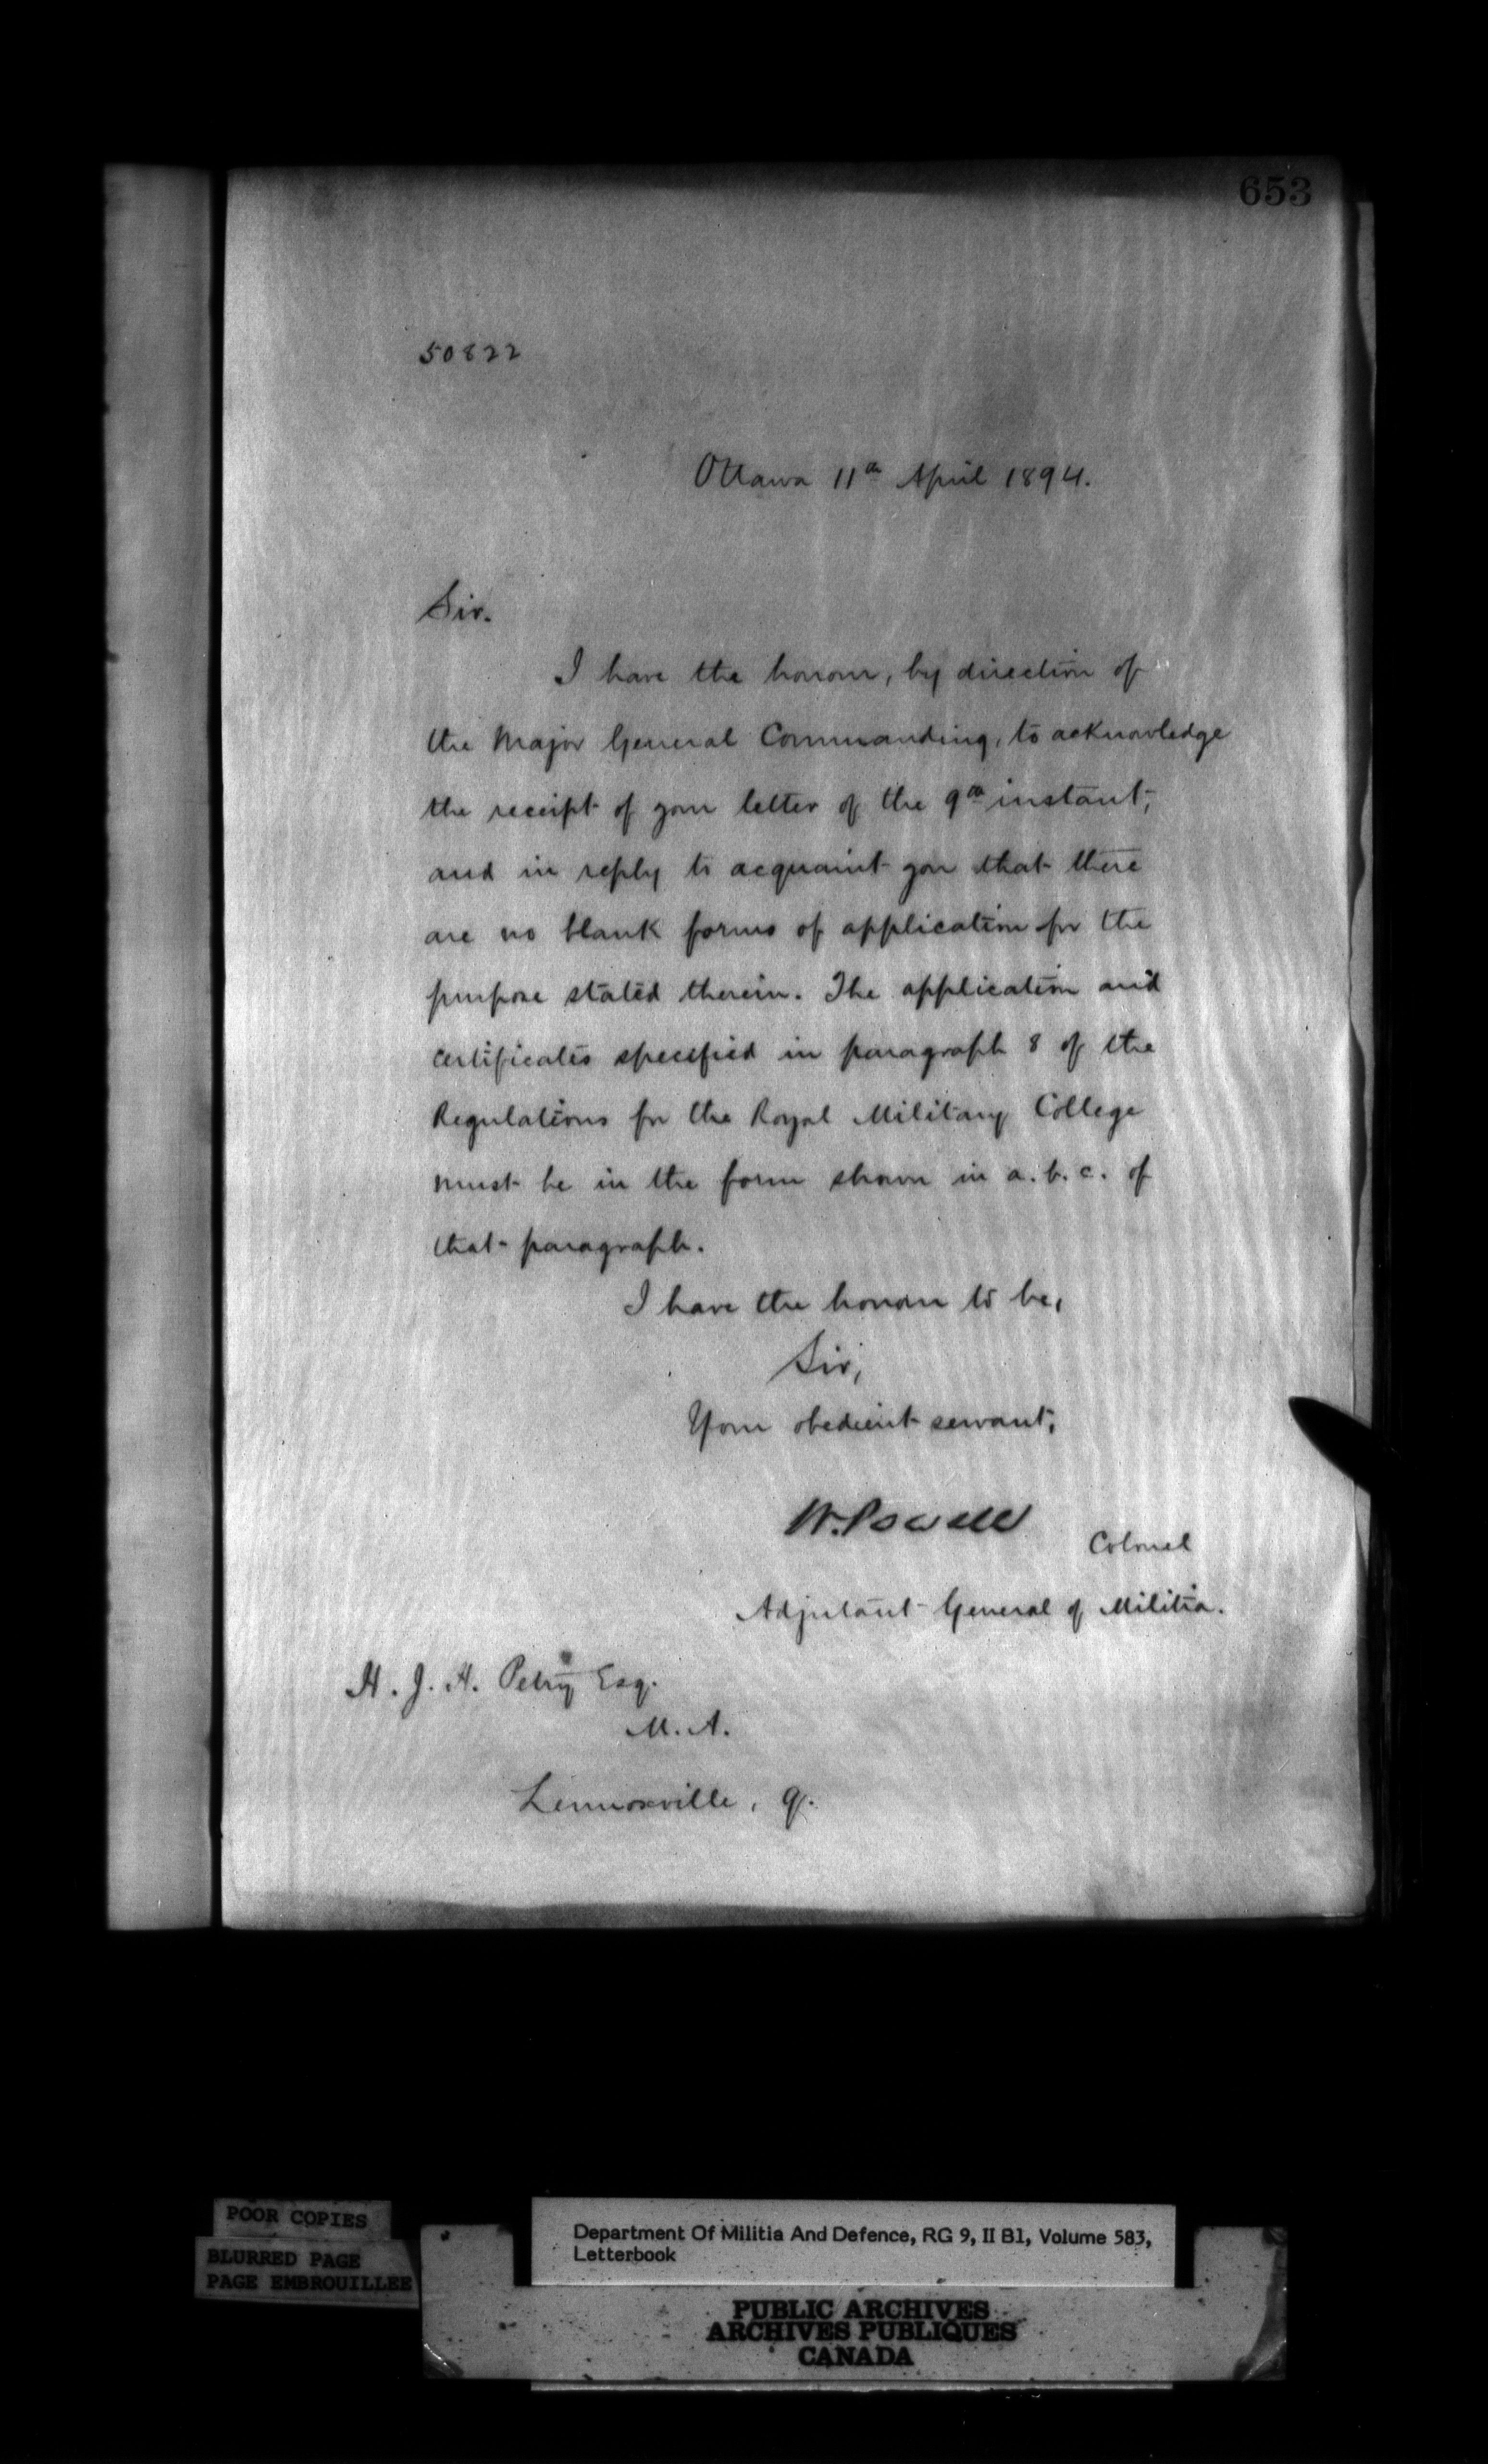 653
50822
Ottawa 11th April 1894.
Sir.
I have the honour, by direction of
the Major General Commanding, to acknowledge
the receipt of your letter of the 9th instant,
and in reply to acquaint you that there
are no blank forms of application for the
purpose stated therein. The application and
certificates specified in paragraph 8 of the
Regulations for the Royal Military College
must be in the form shown in a. b. c. of
that paragraph.
I have the honour to be,
Sir,
Your obedient servant,
W. Powell
Colonel
Adjutant General of Militia.
H. J. H. Petry Esq.
M. A.
Lennoxville, Q.
POOR COPIES
BLURRED PAGE
PAGE EMBROUILLEE
Department Of Militia And Defence, RG 9, II B1, Volume 583,
Letterbook
PUBLIC ARCHIVES
ARCHIVES PUBLIQUES
CANADA